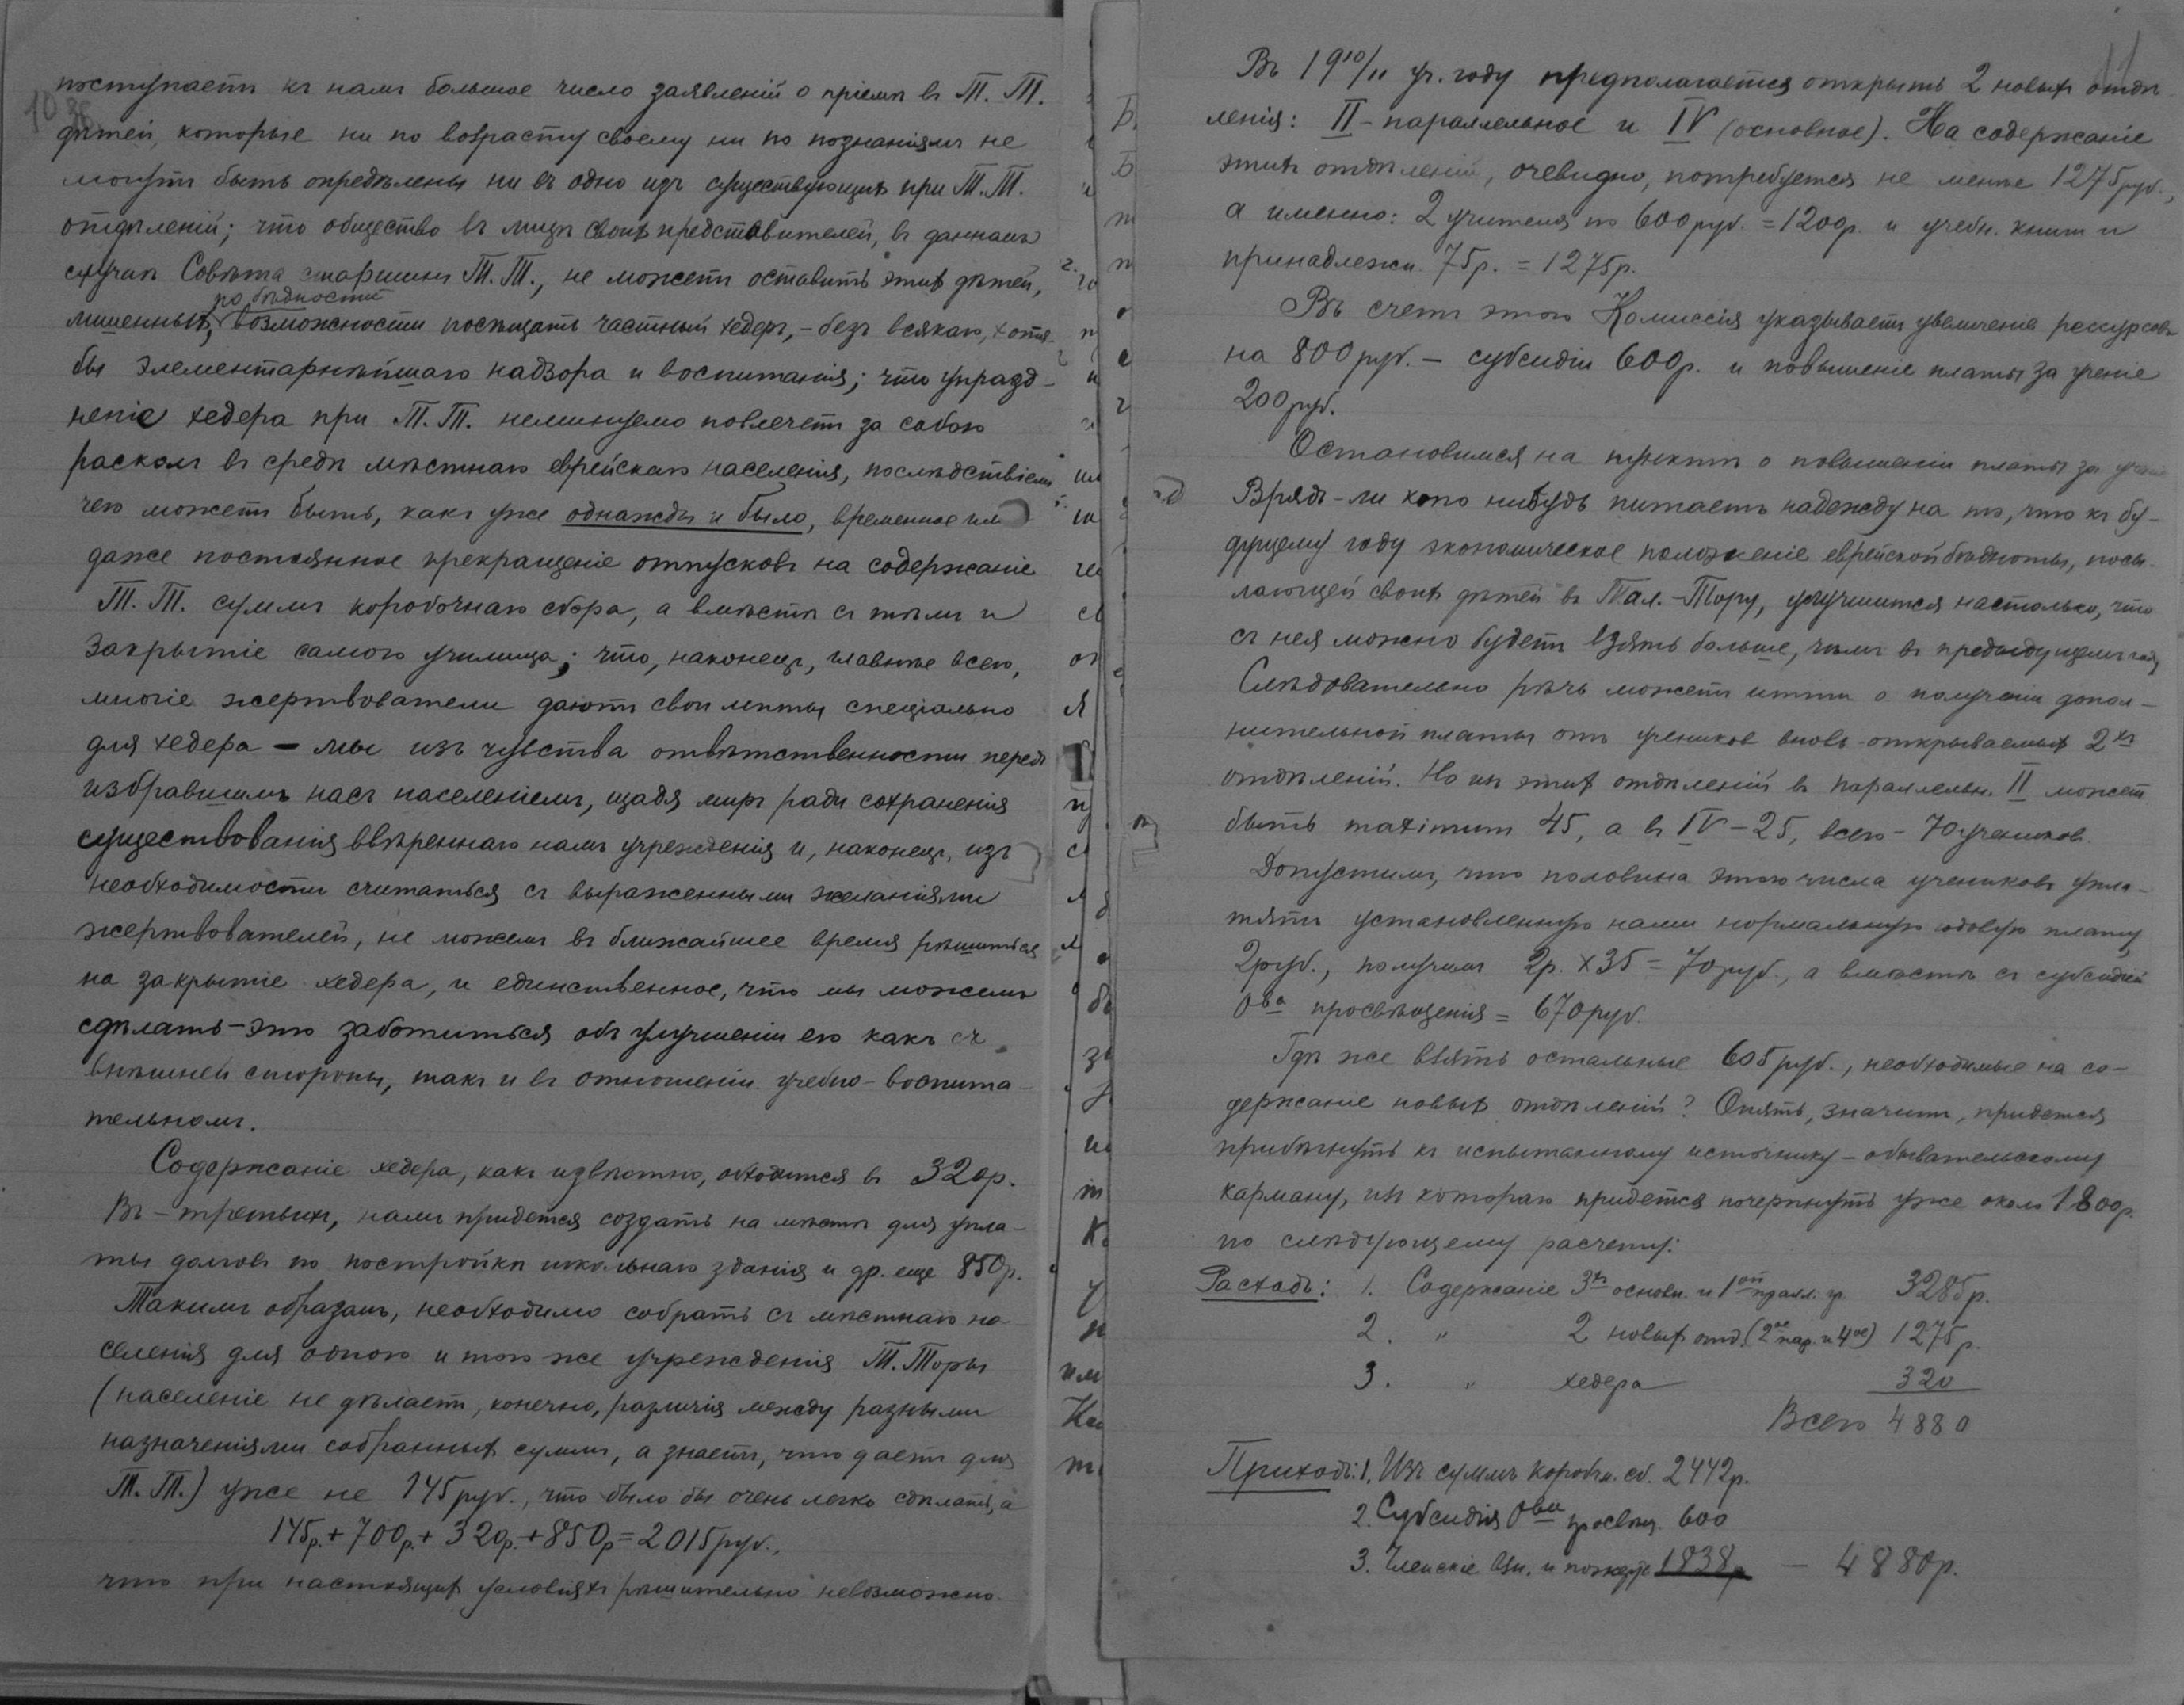 поступаетъ къ намъ большое число заявленій о пріемѣ въ Т. Т.
дѣтей, которые ни по возрасту своему ни по познаніямъ не
могутъ быть опредѣлены ни въ одно изъ существующихъ при Т. Т.
отдѣленій; что общество въ лицѣ своихъ представителей, въ данномъ
случаѣ Совѣта старшинъ Т. Т., не можетъ оставить этихъ дѣтей,
по бѣдности
лишенныхъ возможности посѣщать частный хедеръ, - безъ всякаго, хотя-
бы элементарнѣйшаго надзора и воспитанія; что упразд-
неніе хедера при Т. Т. неминуемо повлечетъ за собою
расколъ въ средѣ мѣстнаго еврейскаго населенія, послѣдствіемъ
чего можетъ быть, какъ уже однажды и было, временное или
даже постоянное прекращеніе отпусковъ на содержаніе
Т. Т. суммъ коробочнаго сбора, а вмѣстѣ съ тѣмъ и
закрытіе самого училища; что, наконецъ, главнѣе всего,
многіе жертвователи даютъ свои лепты спеціально
для хедера — мы изъ чувства отвѣтственности передъ
избравшимъ насъ населеніемъ, щадя миръ ради сохраненія
существованія ввѣреннаго намъ учрежденія и, наконецъ, изъ
необходимости считаться съ выраженными желаніями
жертвователей, не можемъ въ ближайшее время рѣшиться
на закрытіе хедера, и единственное, что мы можемъ
сдѣлать - это заботиться объ улучшеніи его какъ съ
внѣшней стороны, такъ и въ отношеніи учебно-воспита-
тельномъ.
Содержаніе хедера, какъ извѣстно, обходится въ 320р.
Въ-третьихъ, намъ придется создать на мѣстѣ для упла-
ты долговъ по постройкѣ школьнаго зданія и др. еще 850р.
Такимъ образомъ, необходимо собрать съ мѣстнаго на-
селенія для одного и того же учрежденія Т. Торы
(населеніе не дѣлаетъ, конечно, различія между разными
назначеніями собранныхъ суммъ, а знаетъ, что даетъ для
Т. Т.) уже не 145 руб., что было бы очень легко сдѣлать, а
145р. + 700р. + 320р. + 850р = 2015 руб.,
что при настоящихъ условіяхъ рѣшительно невозможно.
Въ 1910/11 уч. году предполагается открыть 2 новыхъ отдѣ-
ленія: II - параллельное и IV (основное). На содержаніе
этихъ отдѣленій, очевидно, потребуется не менѣе 1275 руб.,
а именно: 2 учителя по 600 руб. = 1200р. и учебн. книги и
принадлежн. 75р. = 1275р.
Въ счетъ этого Комиссія указываетъ увеличеніе рессурсовъ
на 800 руб. — субсидіи 600р. и повышеніе платы за ученіе
200 руб.
Остановимся на пунктѣ о повышеніи платы за ученіе
Врядъ-ли кто нибудь питаетъ надежду на то, что къ бу-
дущему году экономическое положеніе еврейской бѣдноты, посы-
лающей своихъ дѣтей въ Тал.-Тору, улучшится настолько, что
съ нея можно будетъ взять больше, чѣмъ въ предыдущемъ году
Слѣдовательно рѣчь можетъ итти о полученіи допол-
нительной платы отъ учениковъ вновь открываемыхъ 2хъ
отдѣленій. Но изъ этихъ отдѣленій въ параллельн. II можетъ
быть maximum 45, а въ IV - 25, всего - 70 учениковъ.
Допустимъ, что половина этого числа учениковъ упла-
тятъ установленную нами нормальную годовую плату
2 руб., получимъ 2р. х 35 = 70 руб., а вмѣстѣ съ субсидіей
Ова просвѣщенія = 670 руб.
Гдѣ же взять остальные 605 руб., необходимые на со-
держаніе новыхъ отдѣленій? Опять, значитъ, придется
прибѣгнуть къ испытанному источнику - обывательскому
карману, изъ котораго придется почерпнуть уже около 1800р.
по слѣдующему расчету:
Расходъ: 1. Содержаніе 3хъ основн. и 1ой паралл. гр. 3285р.
2. " 2 новыхъ отд. (2ое пар. и 4ое) 1275р.
3. " хедера 320
Всего 4880
Приходъ: 1. Изъ суммъ коробч. сб. 2442р.
2. Субсидія Ова просвѣщ. 600
3. Членскіе взн. и пожертв. 1838р — 4880р.